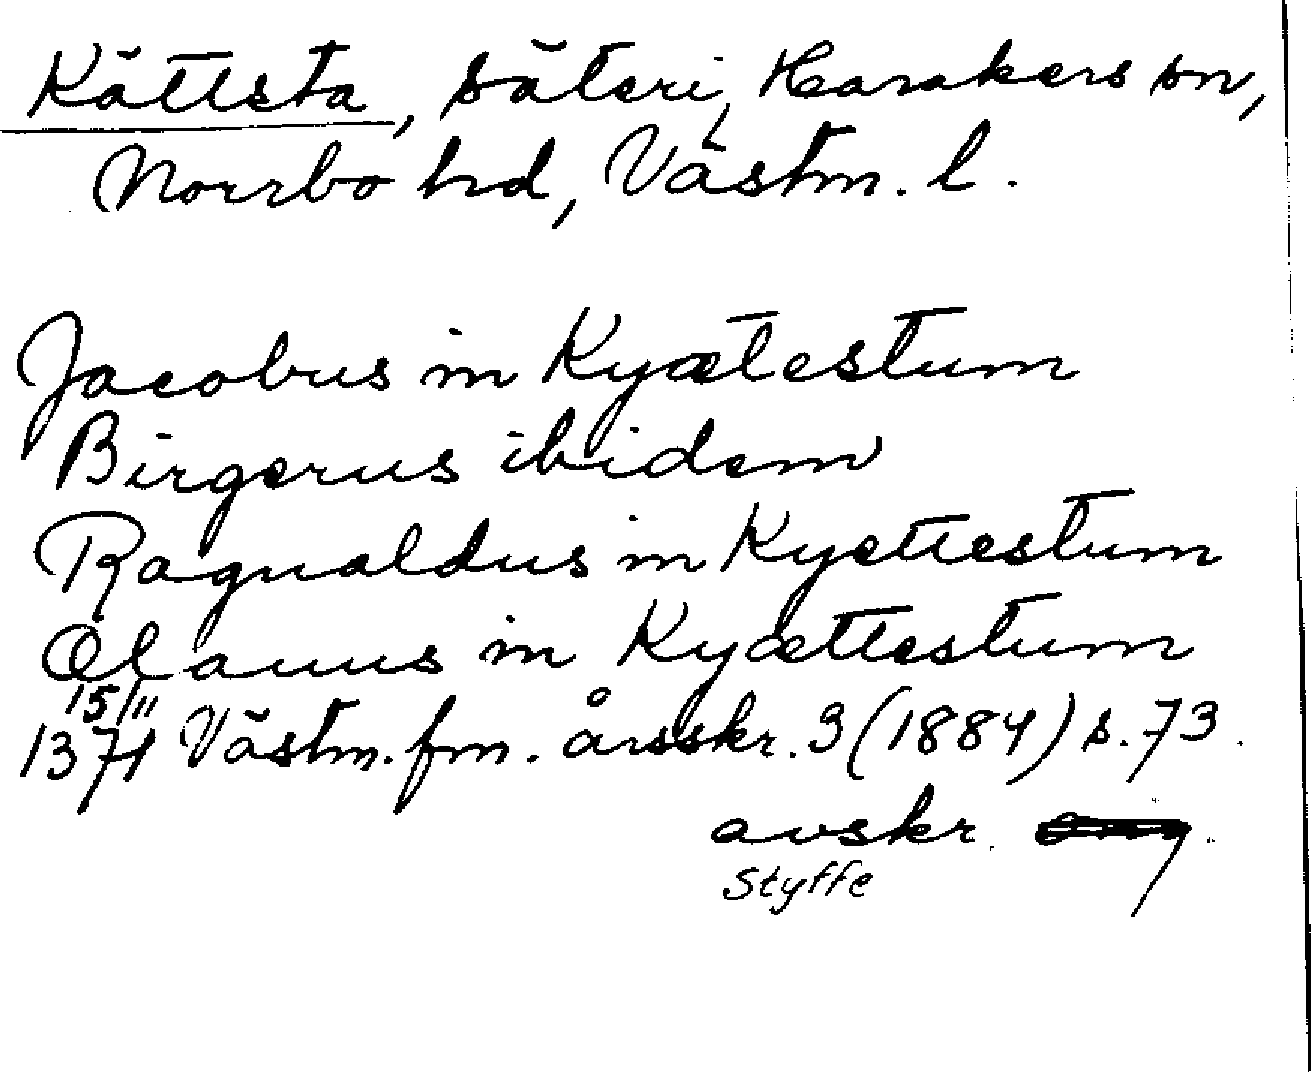 Kättsta, säteri, Harakers sn,
Norrbo hd, Västm. l.
Jacobus in Kyætestum
Birgerus ibidem
Ragualdus in Kyettestum
Olauus in Kyættestum
15/11
1371 Västm. fm. årsskr. 3 (1884) s. 73.
avskr.
Styffe